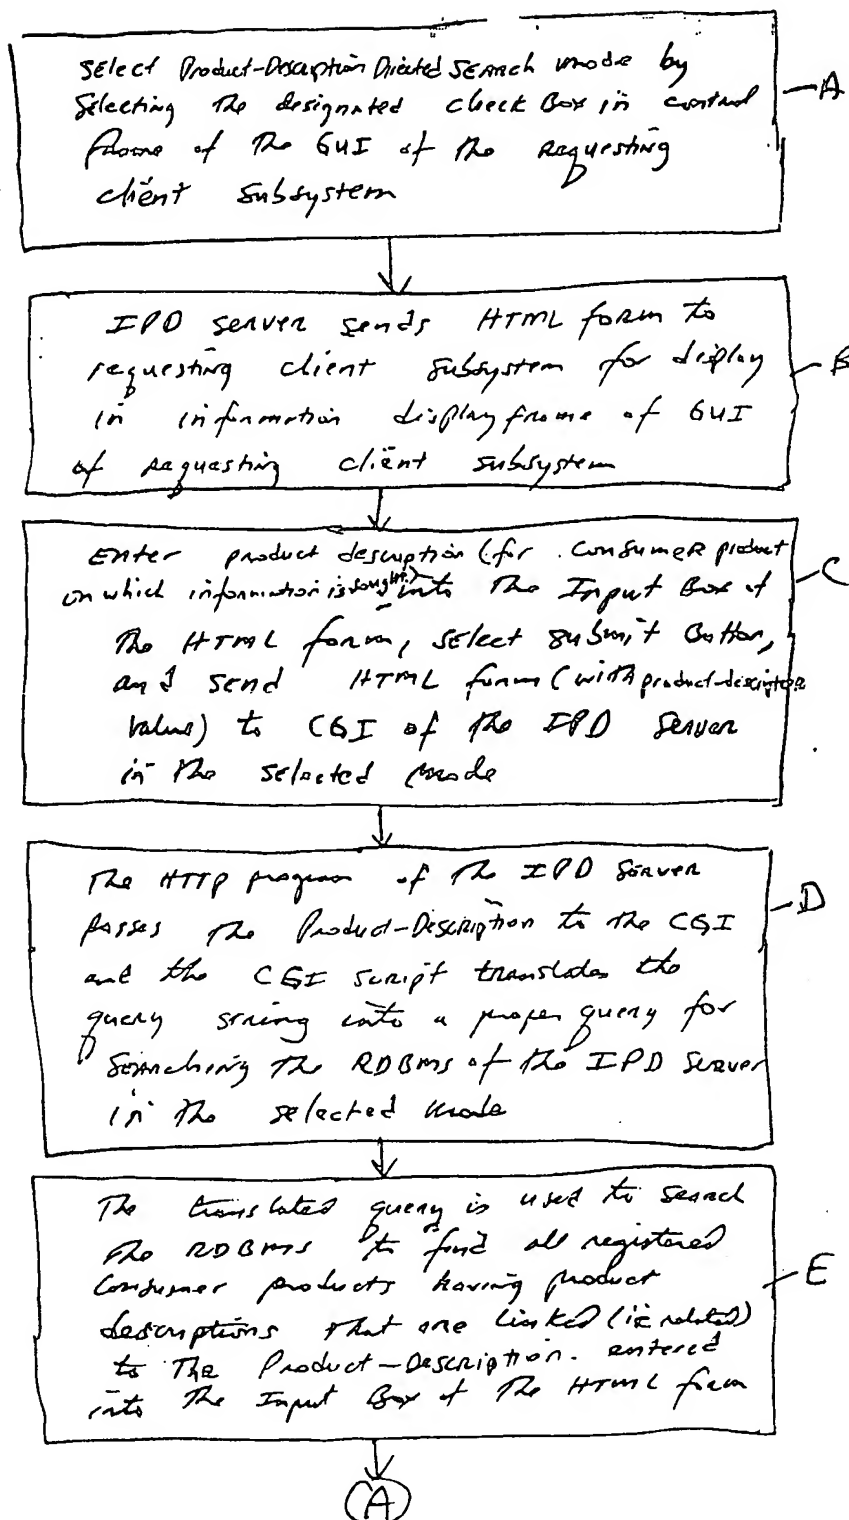 Select Product-Description Directed Search mode by
Selecting the designated check Box in control
frame of the GUI of the requesting
client subsystem
A
IPD server sends HTML form to
requesting client subsystem for display
in information display frame of GUI
of requesting client subsystem
B
Enter product description (for consumer product
on which information is sought) into the Input Box of
the HTML form, select submit Button,
and send HTML form (with product-descriptor
value) to CGI of the IPD Server
in the selected mode
C
The HTTP program of the IPD Server
passes the Product-Description to the CGI
and the CGI script translates the
query string into a proper query for
Searching the RDBMS of the IPD Server
in the selected mode
D
The translated query is used to search
the RDBMS to find all registered
consumer products having product
descriptions that are linked (ie related)
to The Product-Description. entered
into the Input Box of the HTML form
E
A